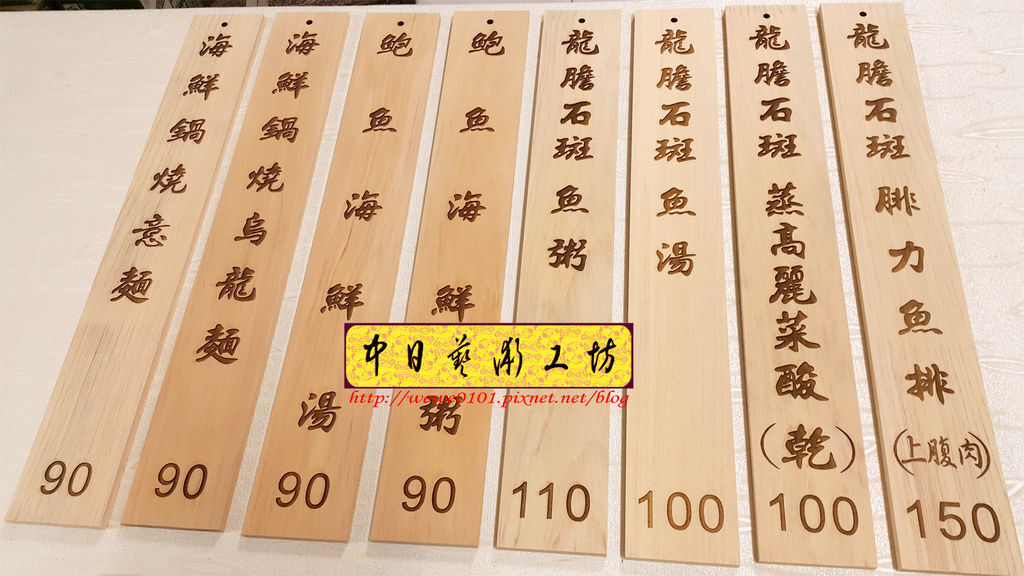 海鮮鍋燒意麵
90
海鮮鍋燒烏龍麵
90
鮑魚海鮮湯
90
鮑魚海鮮粥
90
龍膽石斑魚粥
110
龍膽石斑魚湯
100
龍膽石斑蒸高麗菜酸
(乾)
100
龍膽石斑腓力魚排
(上腹肉)
150
中日藝術工坊
http://wowo0101.pixnet.net/blog